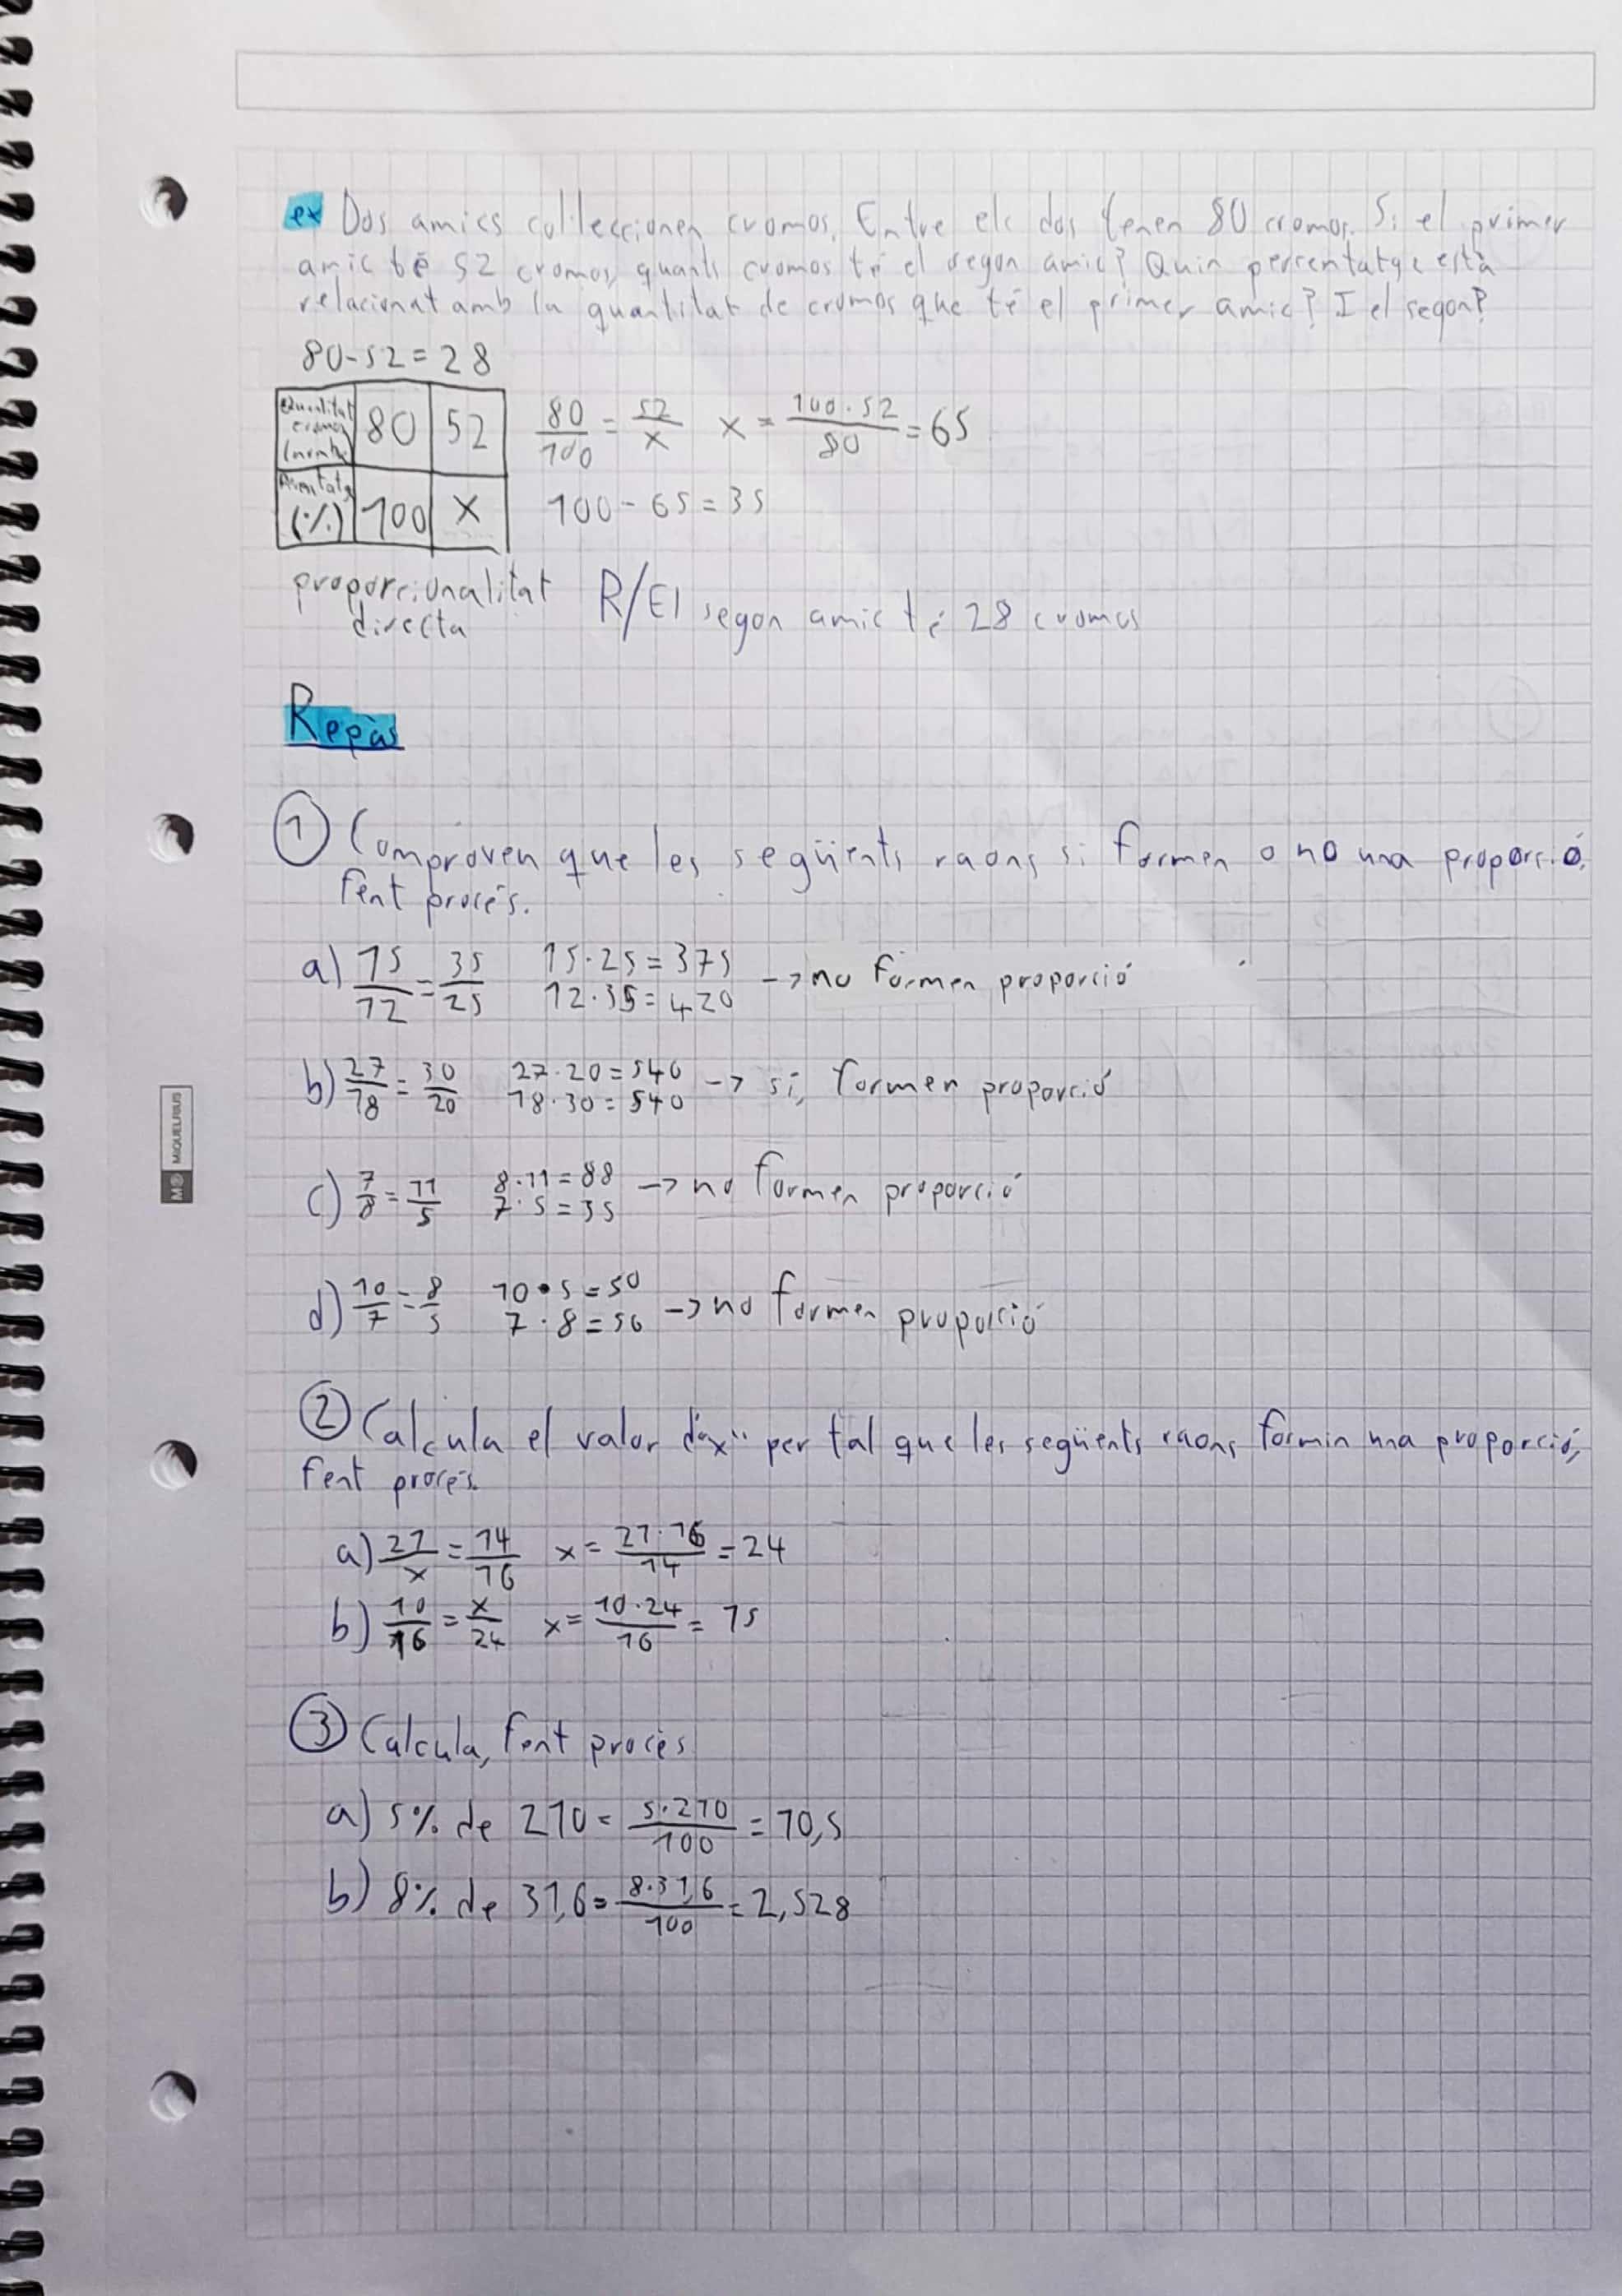 ex Dos amics col·leccionen cromos. Entre els dos tenen 80 cromos. Si el primer
amic té 52 cromos, quants cromos té el segon amic? Quin percentatge està
relacionat amb la quantitat de cromos que té el primer amic? I el segon?
80-52=28
Quantitat cromos 80 52
80/100 = 52/x x = 100·52/80 = 65
Percentatge (%) 100 x
100-65=35
proporcionalitat directa
R/El segon amic té 28 cromos
Repàs
① Comproven que les següents raons si formen o no una proporció,
fent procés.
a) 15/12 = 35/25 15·25=375
12·35=420 → no formen proporció
b) 27/18 = 30/20 27·20=540
18·30=540 → si, formen proporció
c) 7/8 = 11/5 8·11=88
7·5=35 → no formen proporció
d) 10/7 = 8/5 10·5=50
7·8=56 → no formen proporció
② Calcula el valor d'"x" per tal que les següents raons formin una proporció,
fent procés.
a) 21/x = 14/16 x = 21·16/14 = 24
b) 10/16 = x/24 x = 10·24/16 = 15
③ Calcula, fent procés
a) 5% de 210 = 5·210/100 = 10,5
b) 8% de 31,6 = 8·31,6/100 = 2,528
MIQUELRIUS